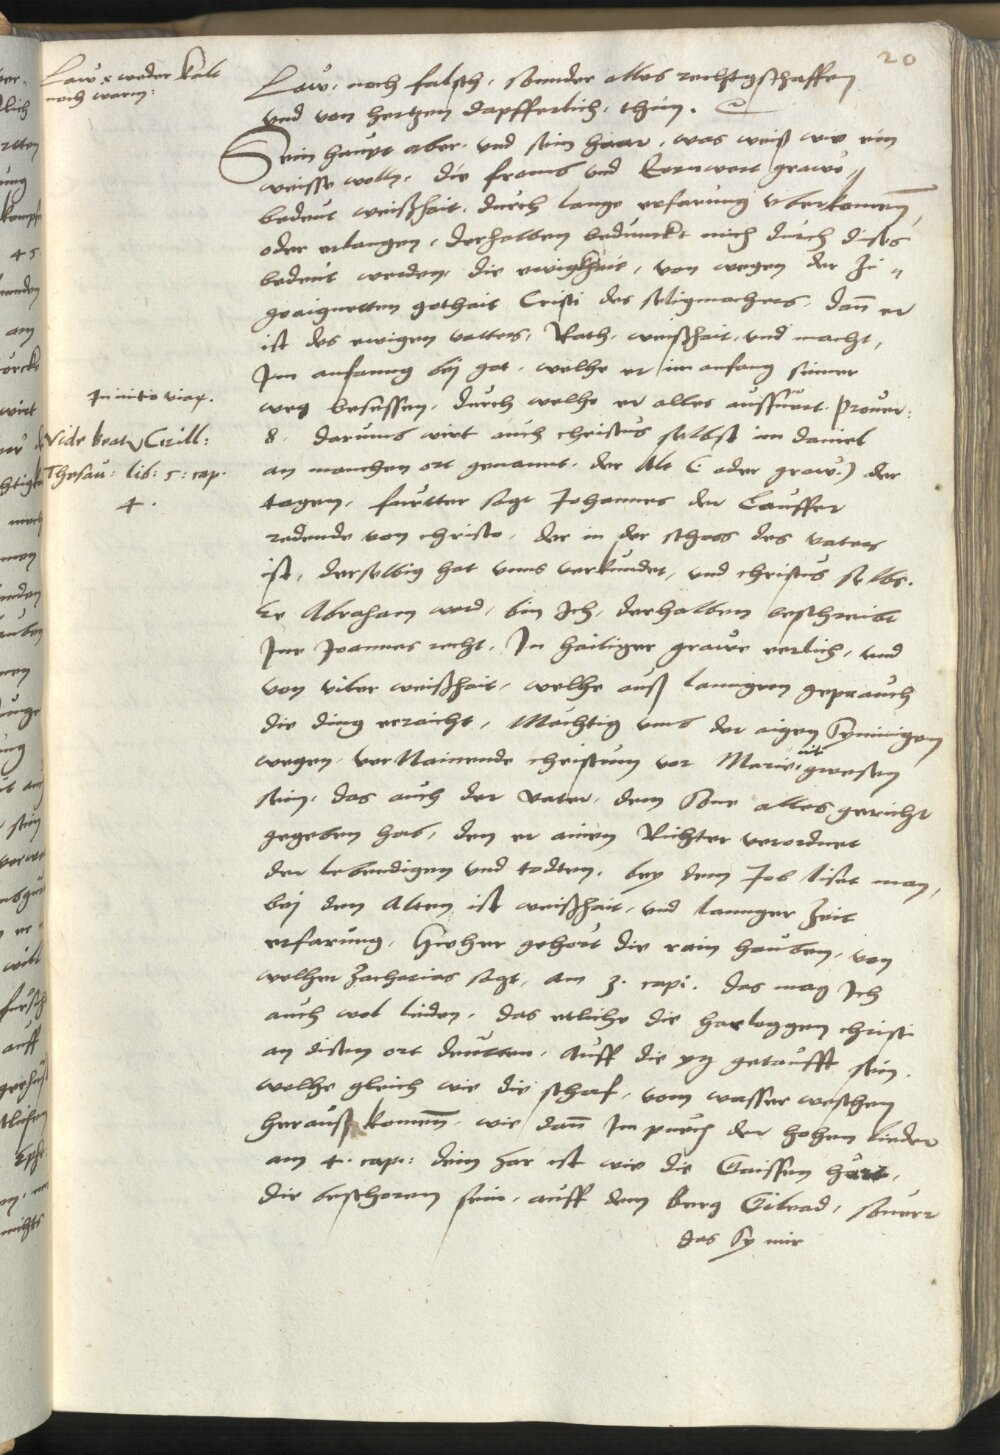 20
Law, weder kalt
noch warm:
Law, noch falsch, sonnder alles rechtgschaffen
vnd von hertzen dapfferlich, thun.
Sein haupt aber, vnd sein haar, was weiß wie ein
weisse woll, die fromb vnd Eernwert grawe
bedeut weißhait, durch lange erfarung vberkomen,
oder erlangen, derhalben bedunckt mich durch dises
bedeut werden, die ewigkhait, von wegen der zu
geaignetten gothait Cristi des seligmachers, dan er
ist des ewigen vatters, Rath, weißhait, vnd macht,
Im anfanng bej got, welhe er im anfang seiner
In initio viar.
weg besessen, durch welhe er alles aussfuert. prouer:
Vide beat Cirill:
8. darumb wirt auch christus selbst im daniel
Thesau: lib: 5: cap.
an manchen ort genannt, der Alt (oder graw.) der
4.
tagen, fuertter sagt Johannes der Tauffer
redende von christo, der in der schoos des vaters
ist, derselbig hat vnns verkundet, vnd christus selbs.
Ee Abraham ward, bin Ich, derhalben beschreibt
Ine Joannes recht, In hailiger grawe eerlich, vnd
von viler weißhait, welhe auß lanngem geprauch
die ding erraicht, Mechtig vmb der aigen
wegen, verNainende christum vor Marie nit gwesen
sein, das auch der Vater, dem Sone alles gericht
gegeben hab, den er ainen Richter verordnet
der lebendigen vnd todten, bey dem Job liset man,
bej dem Alten ist weißhait, vnd lannger Zeit
erfarung, hieher gehört die rain hauben, von
welher Zacharias sagt, am 3. capi. das mag Ich
auch wol leiden, das etliche die harloggen christi
an disem ort deutten, auff die yz getaufft sein.
welhe gleich wie die schaf, vom wasser weschen
herauß komen, wie dan Im puech der hohen lieder
am 4. cap: dein har ist wie die Gaissen
die beschoren sein, auff dem berg Gilead, souerr
das Sy mir